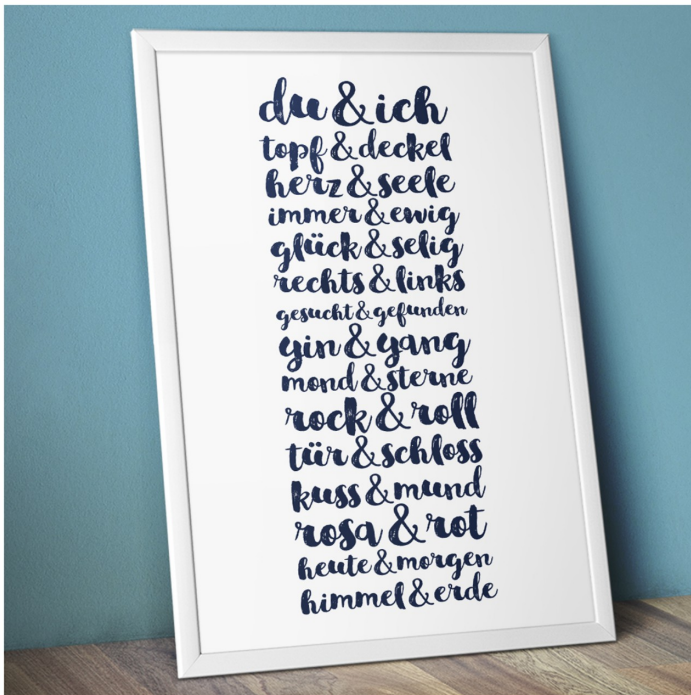 du & ich
topf & deckel
herz & seele
immer & ewig
glück & selig
rechts & links
gesucht & gefunden
gin & gang
mond & sterne
rock & roll
tür & schloss
kuss & mund
rosa & rot
heute & morgen
himmel & erde